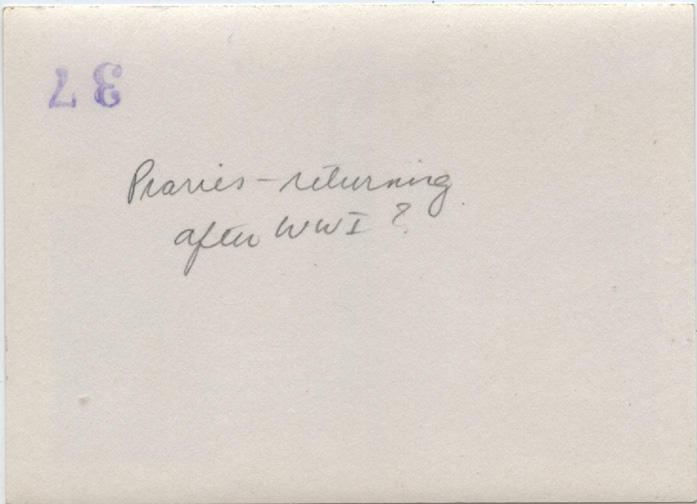 37
Praries - returning
after WWI ?